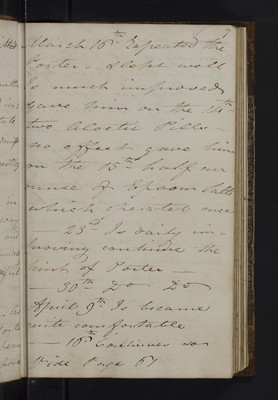 7
March 16th Repeated the
Porter - Slept well
Is much improved
Gave him on the 14th
two Aloetic Pills -
no effect gave him
on the 15th half an
ounce of Epsom Salts
which operated once
- 23d Is daily im=
proving continue the
pint of Porter -
- 30th Do Do
April 9th Is became
quite comfortable
- 16th Continues so
Vide Page 67